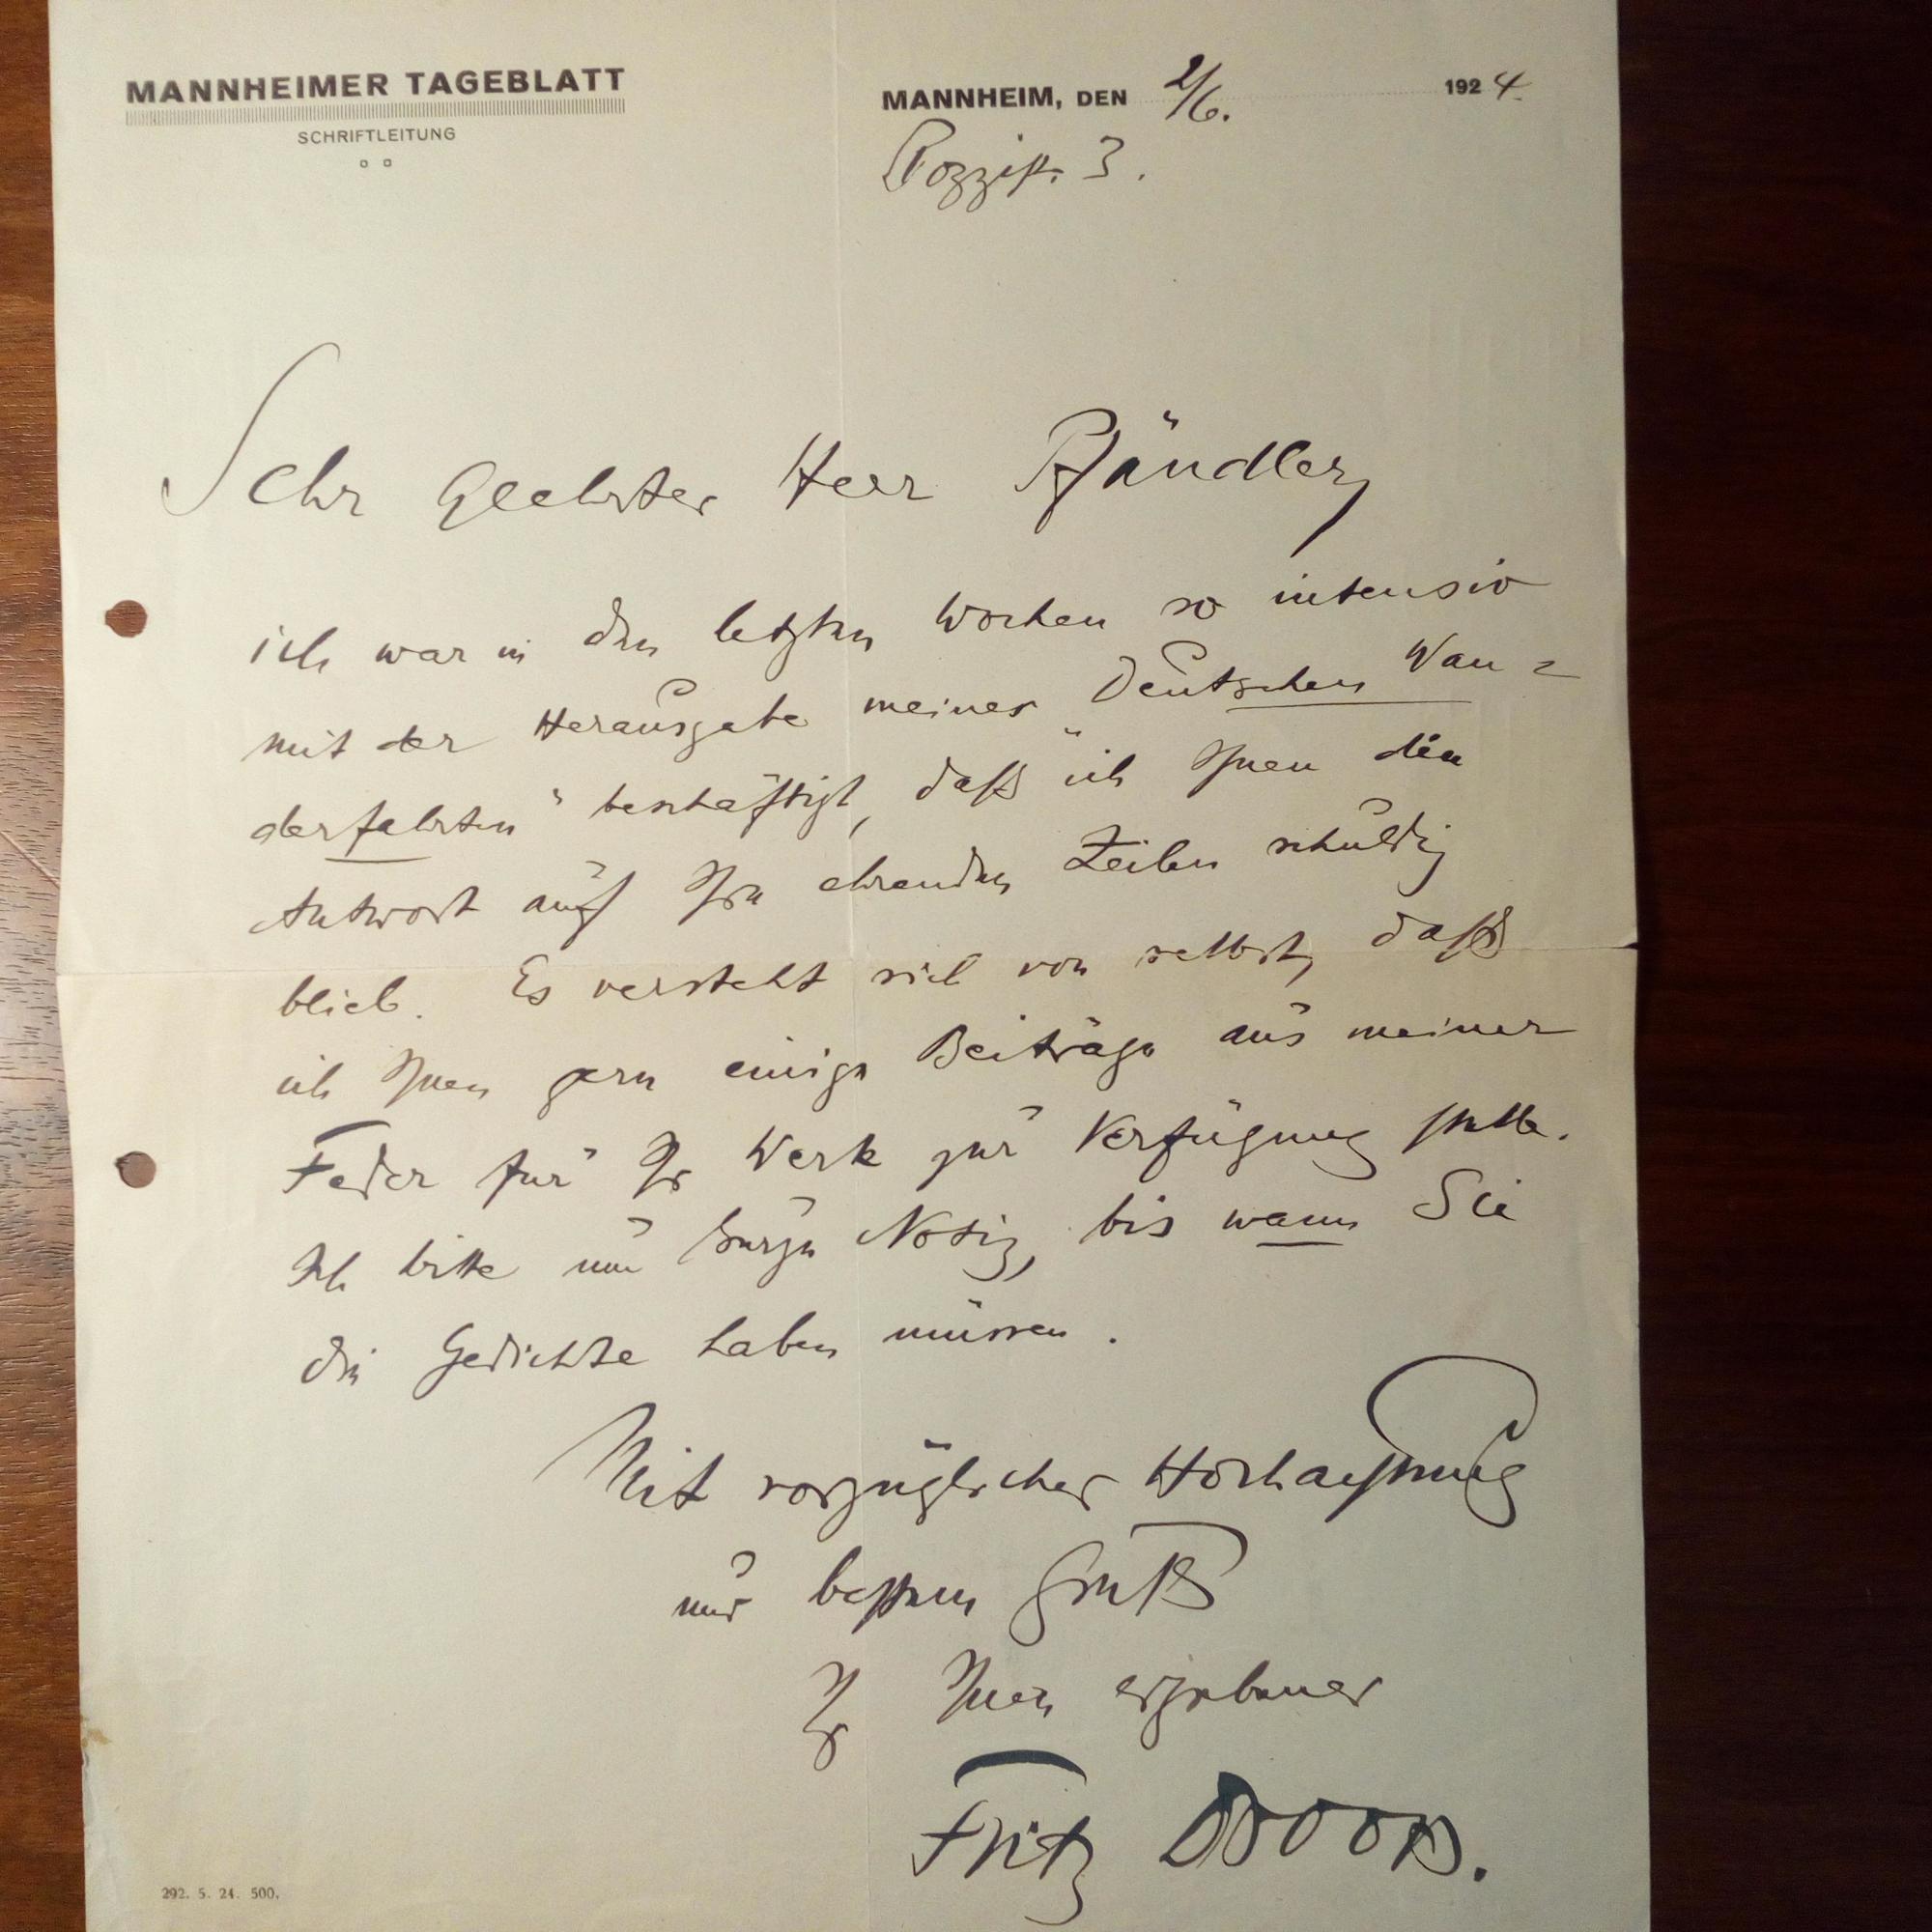 MANNHEIMER TAGEBLATT
SCHRIFTLEITUNG
MANNHEIM, DEN 2/6. 1924.
Pozzistr. 3.
Sehr Geehrter Herr Pfändler,
ich war in den letzten Wochen so intensiv
mit der Herausgabe meiner „Deutschen Wan=
derfahrten“ beschäftigt, daß ich Ihnen die
Antwort auf Ihre ehrenden Zeilen schuldig
blieb. Es versteht sich von selbst, daß
ich Ihnen gern einige Beiträge aus meiner
Feder für Ihr Werk zur Verfügung stelle.
Ich bitte um kurze Notiz, bis wann Sie
die Gedichte haben müssen.
Mit vorzüglicher Hochachtung
und bestem Gruß
Ihr Ihnen ergebener
Fritz Droop.
292. 5. 24. 500.